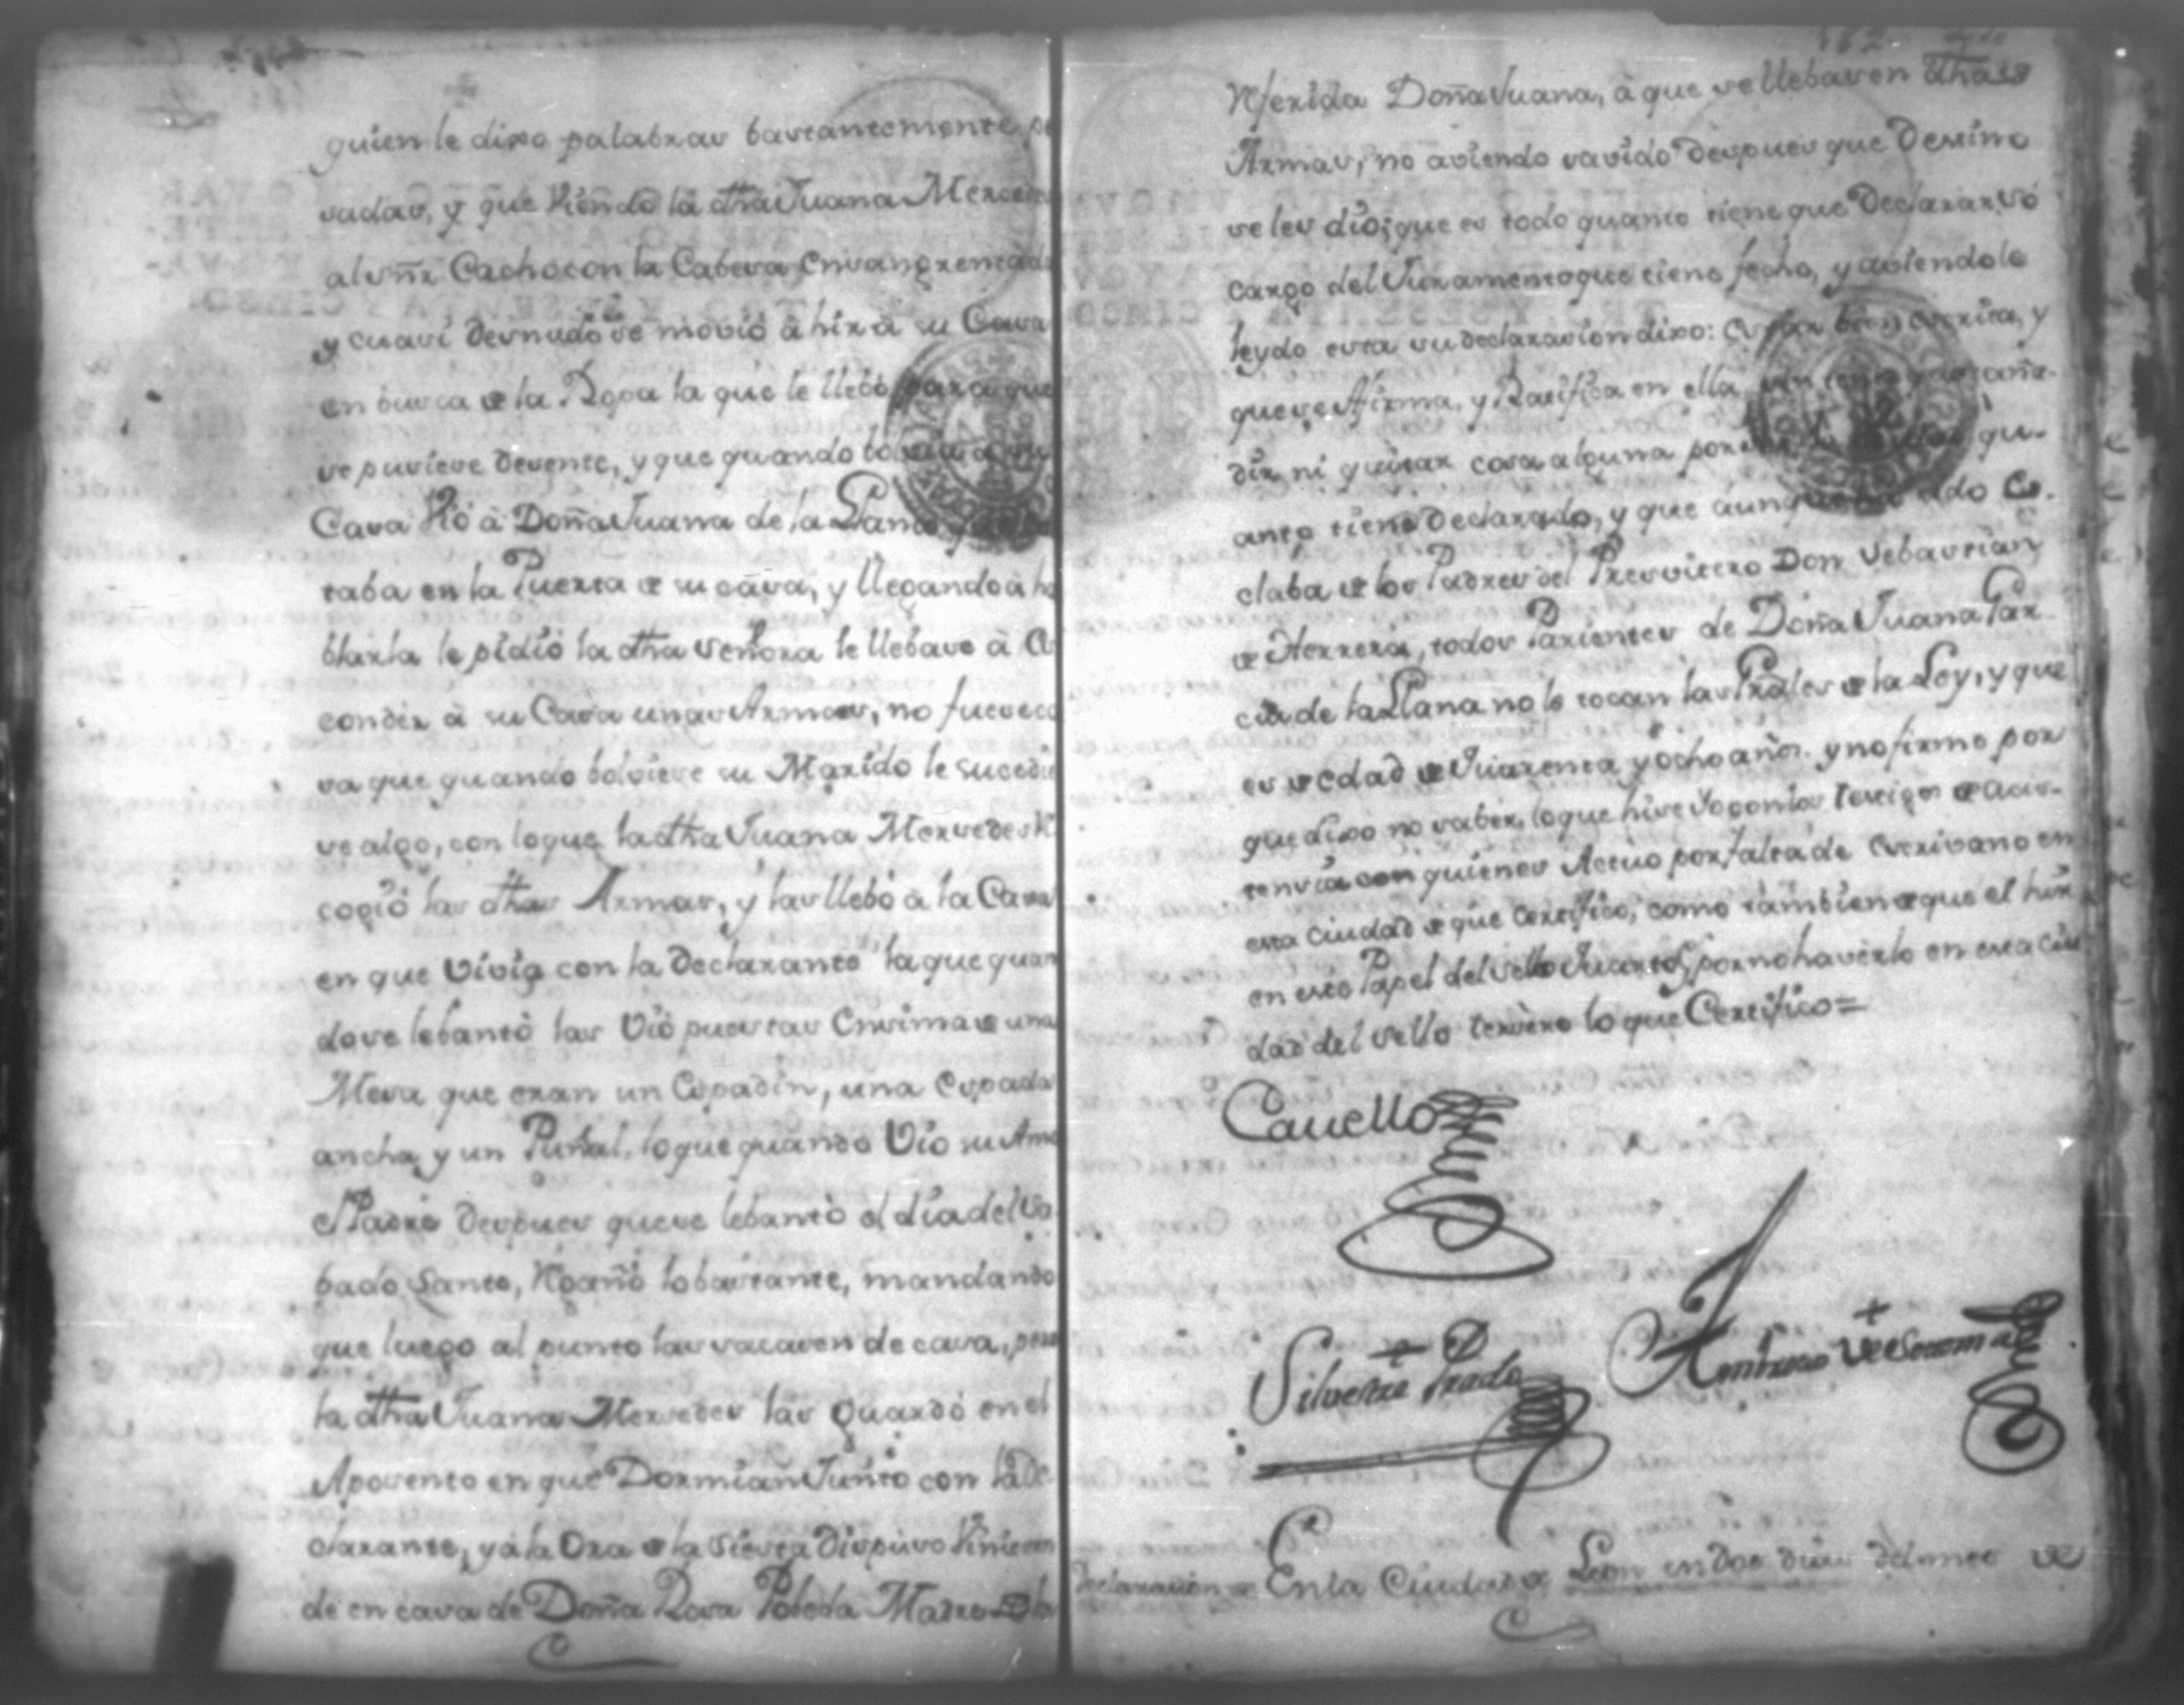 quien le dixo palabras bastantemente pe
sadas, y que viendo la dha Juana Mercedes
al señr Cacho con la Cabesa Ensangrentada
y cuasi desnudo se movió â hir â su Casa
en busca de la Ropa la que le llebó para que
se pusiese desente, y que quando bolvia a su
Casa vió à Doña Juana de la Llana que es
taba en la Puerta de su casa, y llegando â ha
blarla le pidió la dha Señora le llebase â Es
conder â su Casa unas Armas, no fuese co
sa que quando bolviese su Marido le sucedie
se algo, con lo que la dha Juana Mersedes Re
cogió las dhas Armas, y las llebó â la Casa
en que Vivia con la Declarante la que quan
do se lebantó las Vió puestas Ensima de una
Mesa que eran un Espadin, una Espada
ancha, y un Puñal, lo que quando Vio su Amo
el Padre despues que se lebantó el dia del Sa
bado Santo, Regañó lo bastante, mandando
que luego al punto las sacasen de casa, pero
la dha Juana Mersedes las Guardó en el
Aposento en que Dormian Junto con la De
clarante, y à la Ora de la Siesta dispuso viniesen
de en casa de Doña Rosa Pobeda Madre de la
Referida Doña Juana, â que se llebasen dhas
Armas, no aviendo savido despues que Destino
se les dio; que es todo quanto tiene que Declarar só
cargo del Juramento que tiene fecho, y aviendole
leydo esta su declarasion dixo: Estar bien escrita, y
que se Afirma, y Ratifica en ella sin tener que aña-
dir ni quitar cosa alguna por ser qu-
anto tiene Declarado, y que aunque ha sido Es-
claba de los Padres del Presvitero Don Sebastian
de Herrera, todos Parientes de Doña Juana Gar
cia de la Llana no le tocan las Grales de la Ley, y que
es de edad de Quarenta y ocho años. y no firmo por
que dixo no saber, lo que hise Yo con los Testigos de Acis-
tensia con quienes Actuo por falta de Escrivano en
esta Ciudad de que Certifico, como tambien de que el hir
en este Papel del sello Quarto es por no haverlo en esta Ciu
dad del sello tersero lo que Certifico=
Cauello
Silvestre Prado Antonio de Ledesma
Declarasion En la Ciudad de Leon en dos dias del mes de